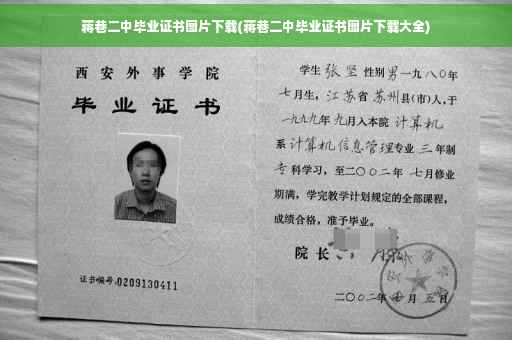 蒋巷二中毕业证书图片下载(蒋巷二中毕业证书图片下载大全)
西安外事学院
毕业证书
证书编号:0209130411
学生 张坚 性别男一九八〇年
七月生,江苏省苏州县(市)人,于
一九九九年九月入本院 计算机
系 计算机信息管理专业 三年制
专科学习,至二〇〇二年七月修业
期满,学完教学计划规定的全部课程,
成绩合格,准予毕业。
院长
二〇〇二年 月五日